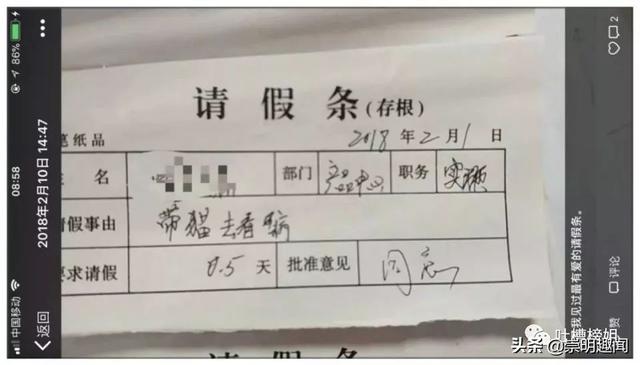 请假条(存根)
笔纸品
2018 年 2 月 1 日
姓 名 部门 产品中心 职务 实习
请假事由 带猫去看病
要求请假 0.5 天 批准意见 同意
请假条
中国移动 08:58 86%
返回 2018年2月10日 14:47
我见过最有爱的请假条。
赞 评论
吐槽榜姐
头条 @崇明趣闻